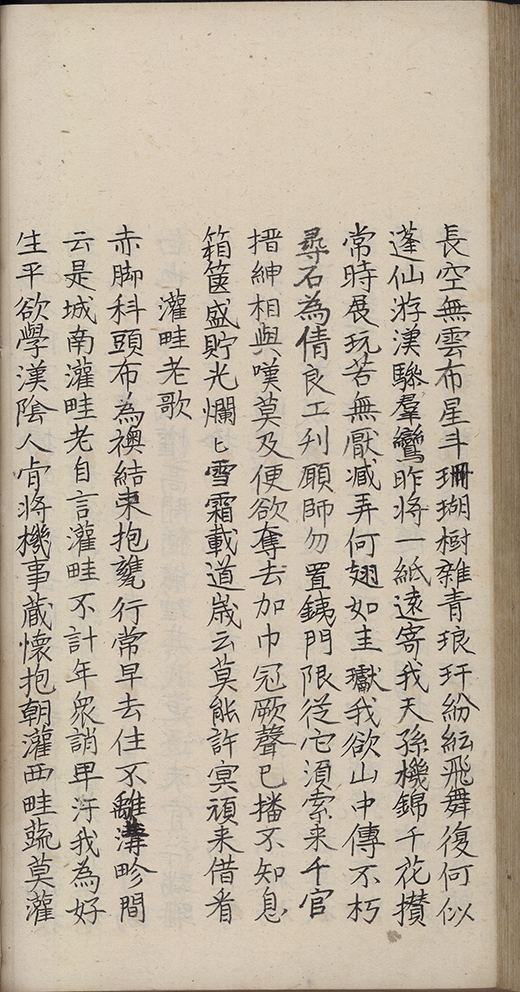 長空無雲布星斗珊瑚樹雜青琅玕紛紜飛舞復何似
蓬仙游漢驂羣鸞昨將一紙遠寄我天孫機錦千花攢
常時展玩苦無厭減弄何翅如圭瓛我欲山中傳不朽
尋石為倩良工刓願師勿置銕門限從它須索来千官
搢紳相與嘆莫及便欲奪去加巾冠厥聲已播不知息
箱篋盛貯光爛匕雪霜載道嵗云莫能許冥頑来借看
灌畦老歌
赤脚科頭布為襖結束抱甕行常早去住不離溝畛間
云是城南灌畦老自言灌畦不計年衆誚卑汙我為好
生平欲學漢陰人肯將機事蔵懷抱朝灌西畦蔬莫灌